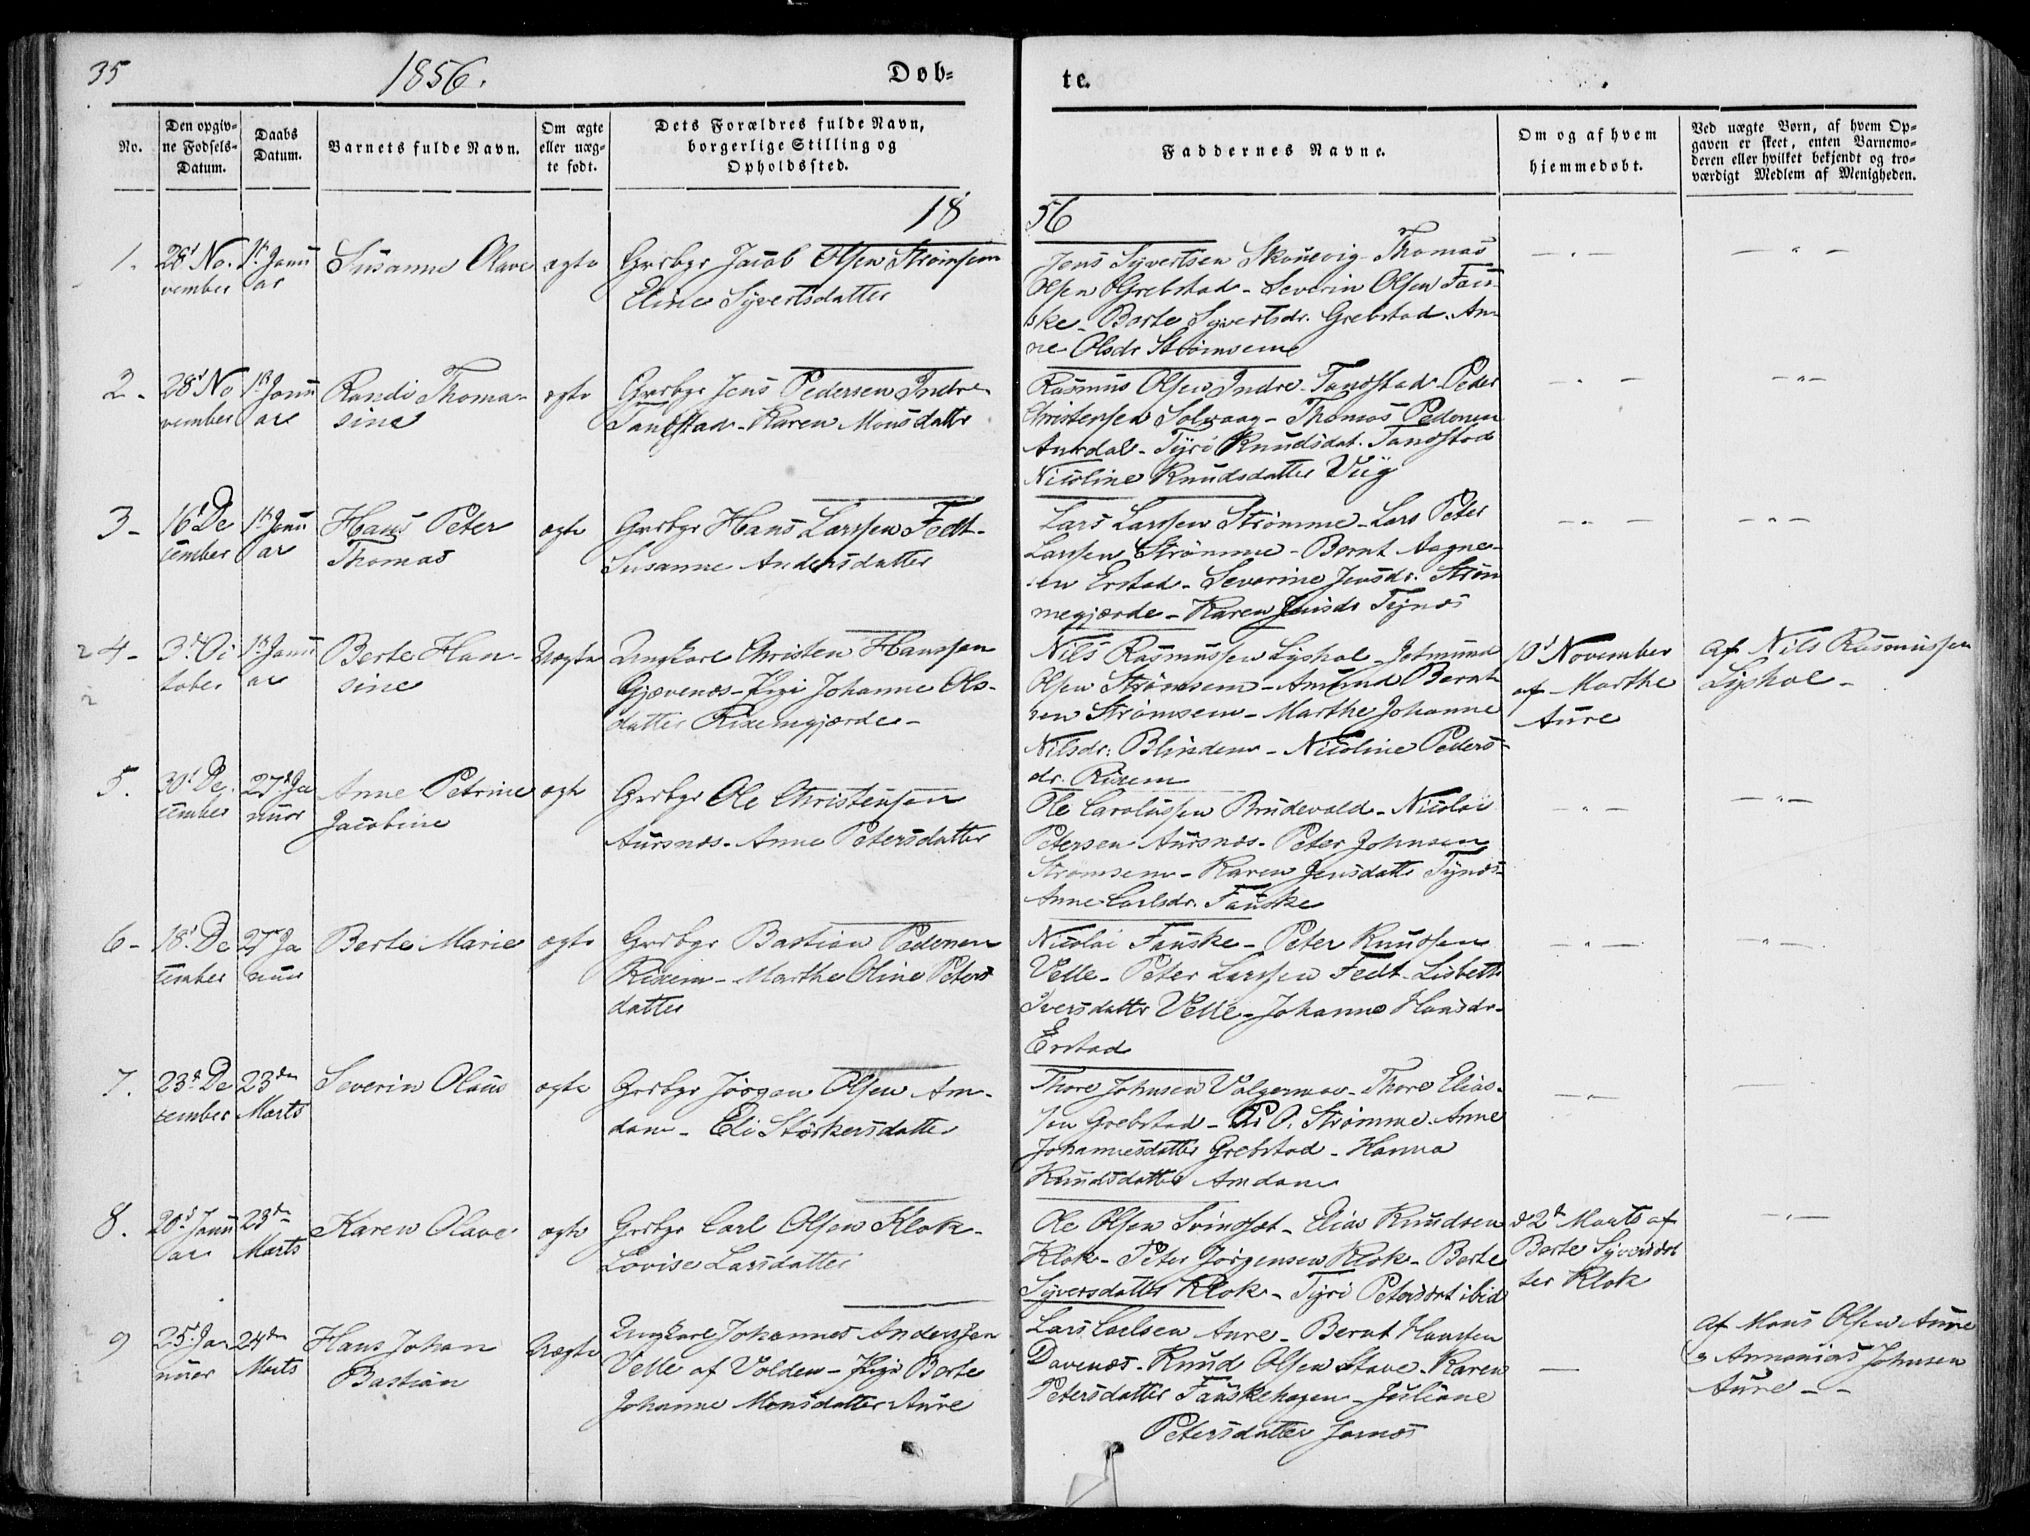 35
1856.
Døb-
te.
No.
Den opgiv-
ne Fødsels-
Datum.
Daabs
Datum.
Barnets fulde Navn.
Om ægte
eller uæg-
te født.
Dets Forældres fulde Navn,
borgerlige Stilling og
Opholdssted.
Faddernes Navne.
Om og af hvem
hjemmedøbt.
Ved uægte Børn, af hvem Op-
gaven er skeet, enten Barnemo-
deren eller hvilket bekjendt og tro-
værdigt Medlem af Menigheden.
18
56
1.
28d No-
vember
1st Janu
ar
Susanne Olave
ægte
Grbgr Jacob Olsen Strømsem
Eline Syvertsdatter
Jens Syvertsen Skouevig - Thomas
Olsen Grebstad - Severin Olsen Faus-
ske - Berte Syvertsdr. Grebstad. An-
ne Olsdr Strømsem
2.
28d No
vember
1st Janu
ar
Randi Thoma-
sine
ægte
Grdbgr Jens Pedersen Indre
Tandstad - Karen Monsdatter
Rasmus Olsen Indre-Tandstad - Peder
Christensen Solvaag - Thomas Pedersen
Aurdal - Tyri Knudsdat. Tandstad
Nicoline Knudsdatter Viig
3-
16d De
cember
1st Janu
ar
Hans Peter
Thomas
ægte
Grdbgr Hans Larssen Fedt-
Susanne Andersdatter
Lars Larssen Strømme - Lars Peter
Larssen Strømme - Bernt Aagne-
sen Erstad - Severine Jensdr. Strøm
megjærde - Karen Jensdr Tynes
4-
3d Oc
tober
1st Janu
ar
Berte Han-
sine
Uægte
Ungkarl Christen Hanssen
Gjævenes - Pige Johanne Ols-
datter Rixemgjærde-
Nils Rasmussen Lyshol - Jetmund
Olsen Strømsem - Amund Bernt-
sen Strømsem - Marthe Johanne
Nilsdr. Blindem - Nicoline Peders-
dr. Rixem
10d November
af Marthe
Aure
Af Nils Rasmussen
Lyshol-
5.
30d De-
cember
27d Ja
nuar
Anne Petrine
Jacobine
ægte
Grdbgr Ole Christensen
Aursnes - Anne Petersdatter
Ole Carolussen Brudevold - Nicolai
Petersen Aursnes - Peter Johnsen
Strømsem - Karen Jensdatter Tynes-
Anne Carlsdr. Fauske
6-
18d De
cember
27d Ja
nuar
Berte Marie
ægte
Grdbgr Bastian Pedersen
Rixem - Marthe Oline Peters
datter
Nicolai Fauske - Peter Knudsen
Velle - Peter Larssen Fedt - Lisbeth
Iversdatter Velle - Johanne Hansdr-
Erstad
7.
23d De
cember
23de
Marts
Severin Olaus
ægte
Grdbgr Jørgen Olsen Am-
dam - Eli Størkersdatter
Thore Johnsen Valgermoe - Thore Elias-
sen Grebstad - O. Strømme. Anne
Johannesdatter Grebstad - Hanna
Knudsdatter Amdam
8.
20d Janu
ar
23de
Marts
Karen Olave
ægte
Grdbgr Carl Olsen Klok-
Lovise Larsdatter
Ole Olsen Svindset - Elias Knudsen
Klok - Peter Jørgensen Klok - Berte
Syversdatter Klok - Tyri Petersdat ibid
d 2d Marts af
Berte Syversdat
ter Klok
9
25d Ja
nuar
24de
Marts
Hans Johan
Bastian
Uægte
Ungkarl Johannes Anderssen
Velle af Volden - Pige Berte
Johanne Monsdatter Aure
Lars Carlsen Aure - Bernt Hansen
Davenes - Knud Olsen Stave - Karen
Petersdatter Fauskehagen - Juliane
Petersdatter Jarnes
af Mons Olsen Aure
og Annanias Johnsen
Aure - -